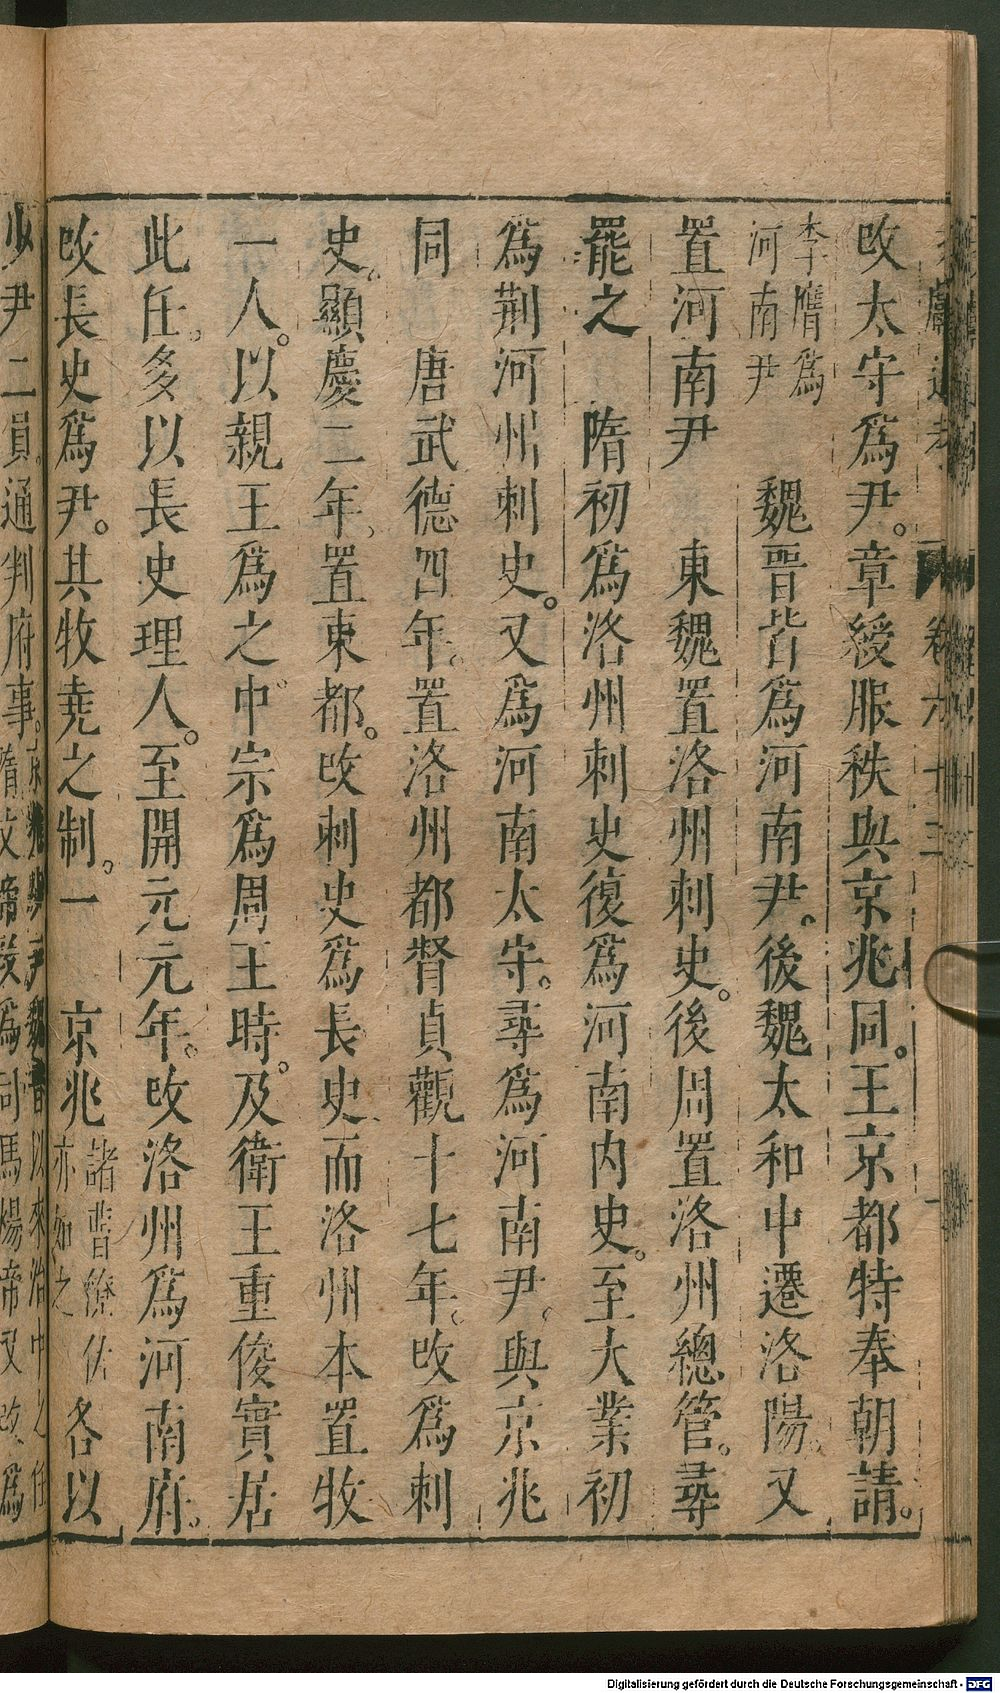 改太守爲尹。章綬服秩與京兆同。王京都特奉朝請。
李膺爲
河南尹
魏晉皆爲河南尹。後魏太和中遷洛陽。又
置河南尹　東魏置洛州刺史。後周置洛州總管。尋
罷之　隋初爲洛州刺史復爲河南内史。至大業初
爲荆河州刺史。又爲河南太守。尋爲河南尹。與京兆
同　唐武德四年。置洛州都督貞觀十七年。改爲刺
史。顯慶二年。置東都。改刺史爲長史而洛州本置牧
一人。以親王爲之。中宗爲周王時。及衛王重俊實居
此任。多以長史理人。至開元元年。改洛州爲河南府。
改長史爲尹。其牧尭之制。一　京兆
諸曹僚佐
亦如之
各以
少尹二員。通判府事。
魏晉以來治中之任
隋文帝改爲司馬煬帝又改爲
卷六十三
Digitalisierung gefördert durch die Deutsche Forschungsgemeinschaft - DFG